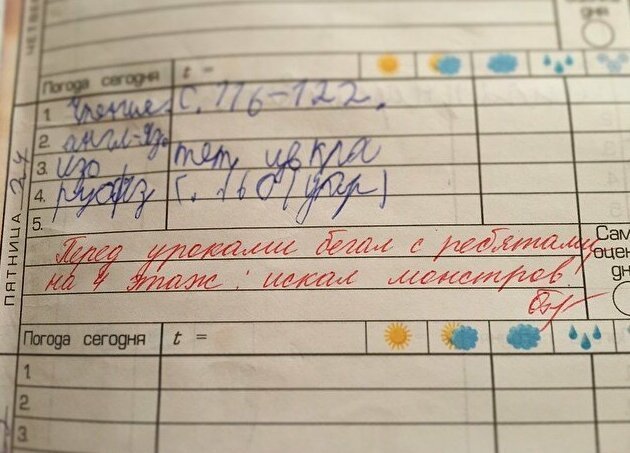 ЧЕТВЕ
дня
Погода сегодня t =
1. Чтение с. 116-122.
2. англ-яз.
3. изо тет, цв кра
4. русяз с. 160 (упр)
5.
ПЯТНИЦА 24
Перед уроками бегал с ребятами
на 4 этаж: искал монстров.
Сам
оцен
дн
Погода сегодня t =
1
2
3.